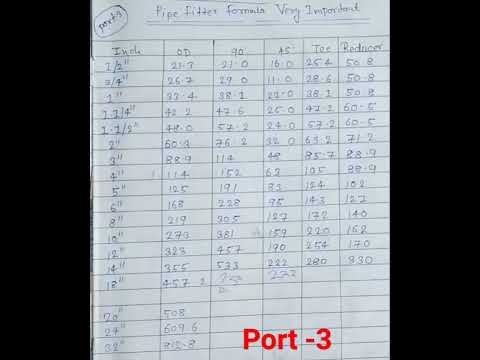 Part-3
Pipe fitter formula Very Important
Inch OD 90 45 Tee Reducer
1/2" 21.3 21.0 16.0 25.4 50.8
3/4" 26.7 29.0 11.0 28.6 50.8
1" 33.4 38.1 22.0 38.1 50.8
1.1/4" 42.2 47.6 25.0 47.2 60.5
1.1/2" 48.0 57.2 24.0 57.2 60.5
2" 60.3 76.2 32.0 63.2 71.2
3" 88.9 114 48 85.7 88.9
4" 114 152 63 105 88.9
5" 125 191 83 124 102
6" 168 228 95 143 127
8" 219 305 127 172 140
10" 273 381 159 220 162
12" 323 457 190 254 170
14" 355 533 222 280 330
18" 457.2
20" 508
24" 609.6
32" 812.8
Port -3